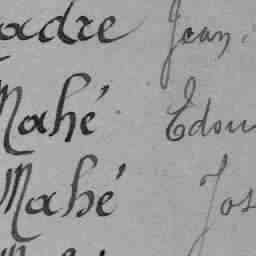 adre Jean.
Mahé Edou
Mahé Jos